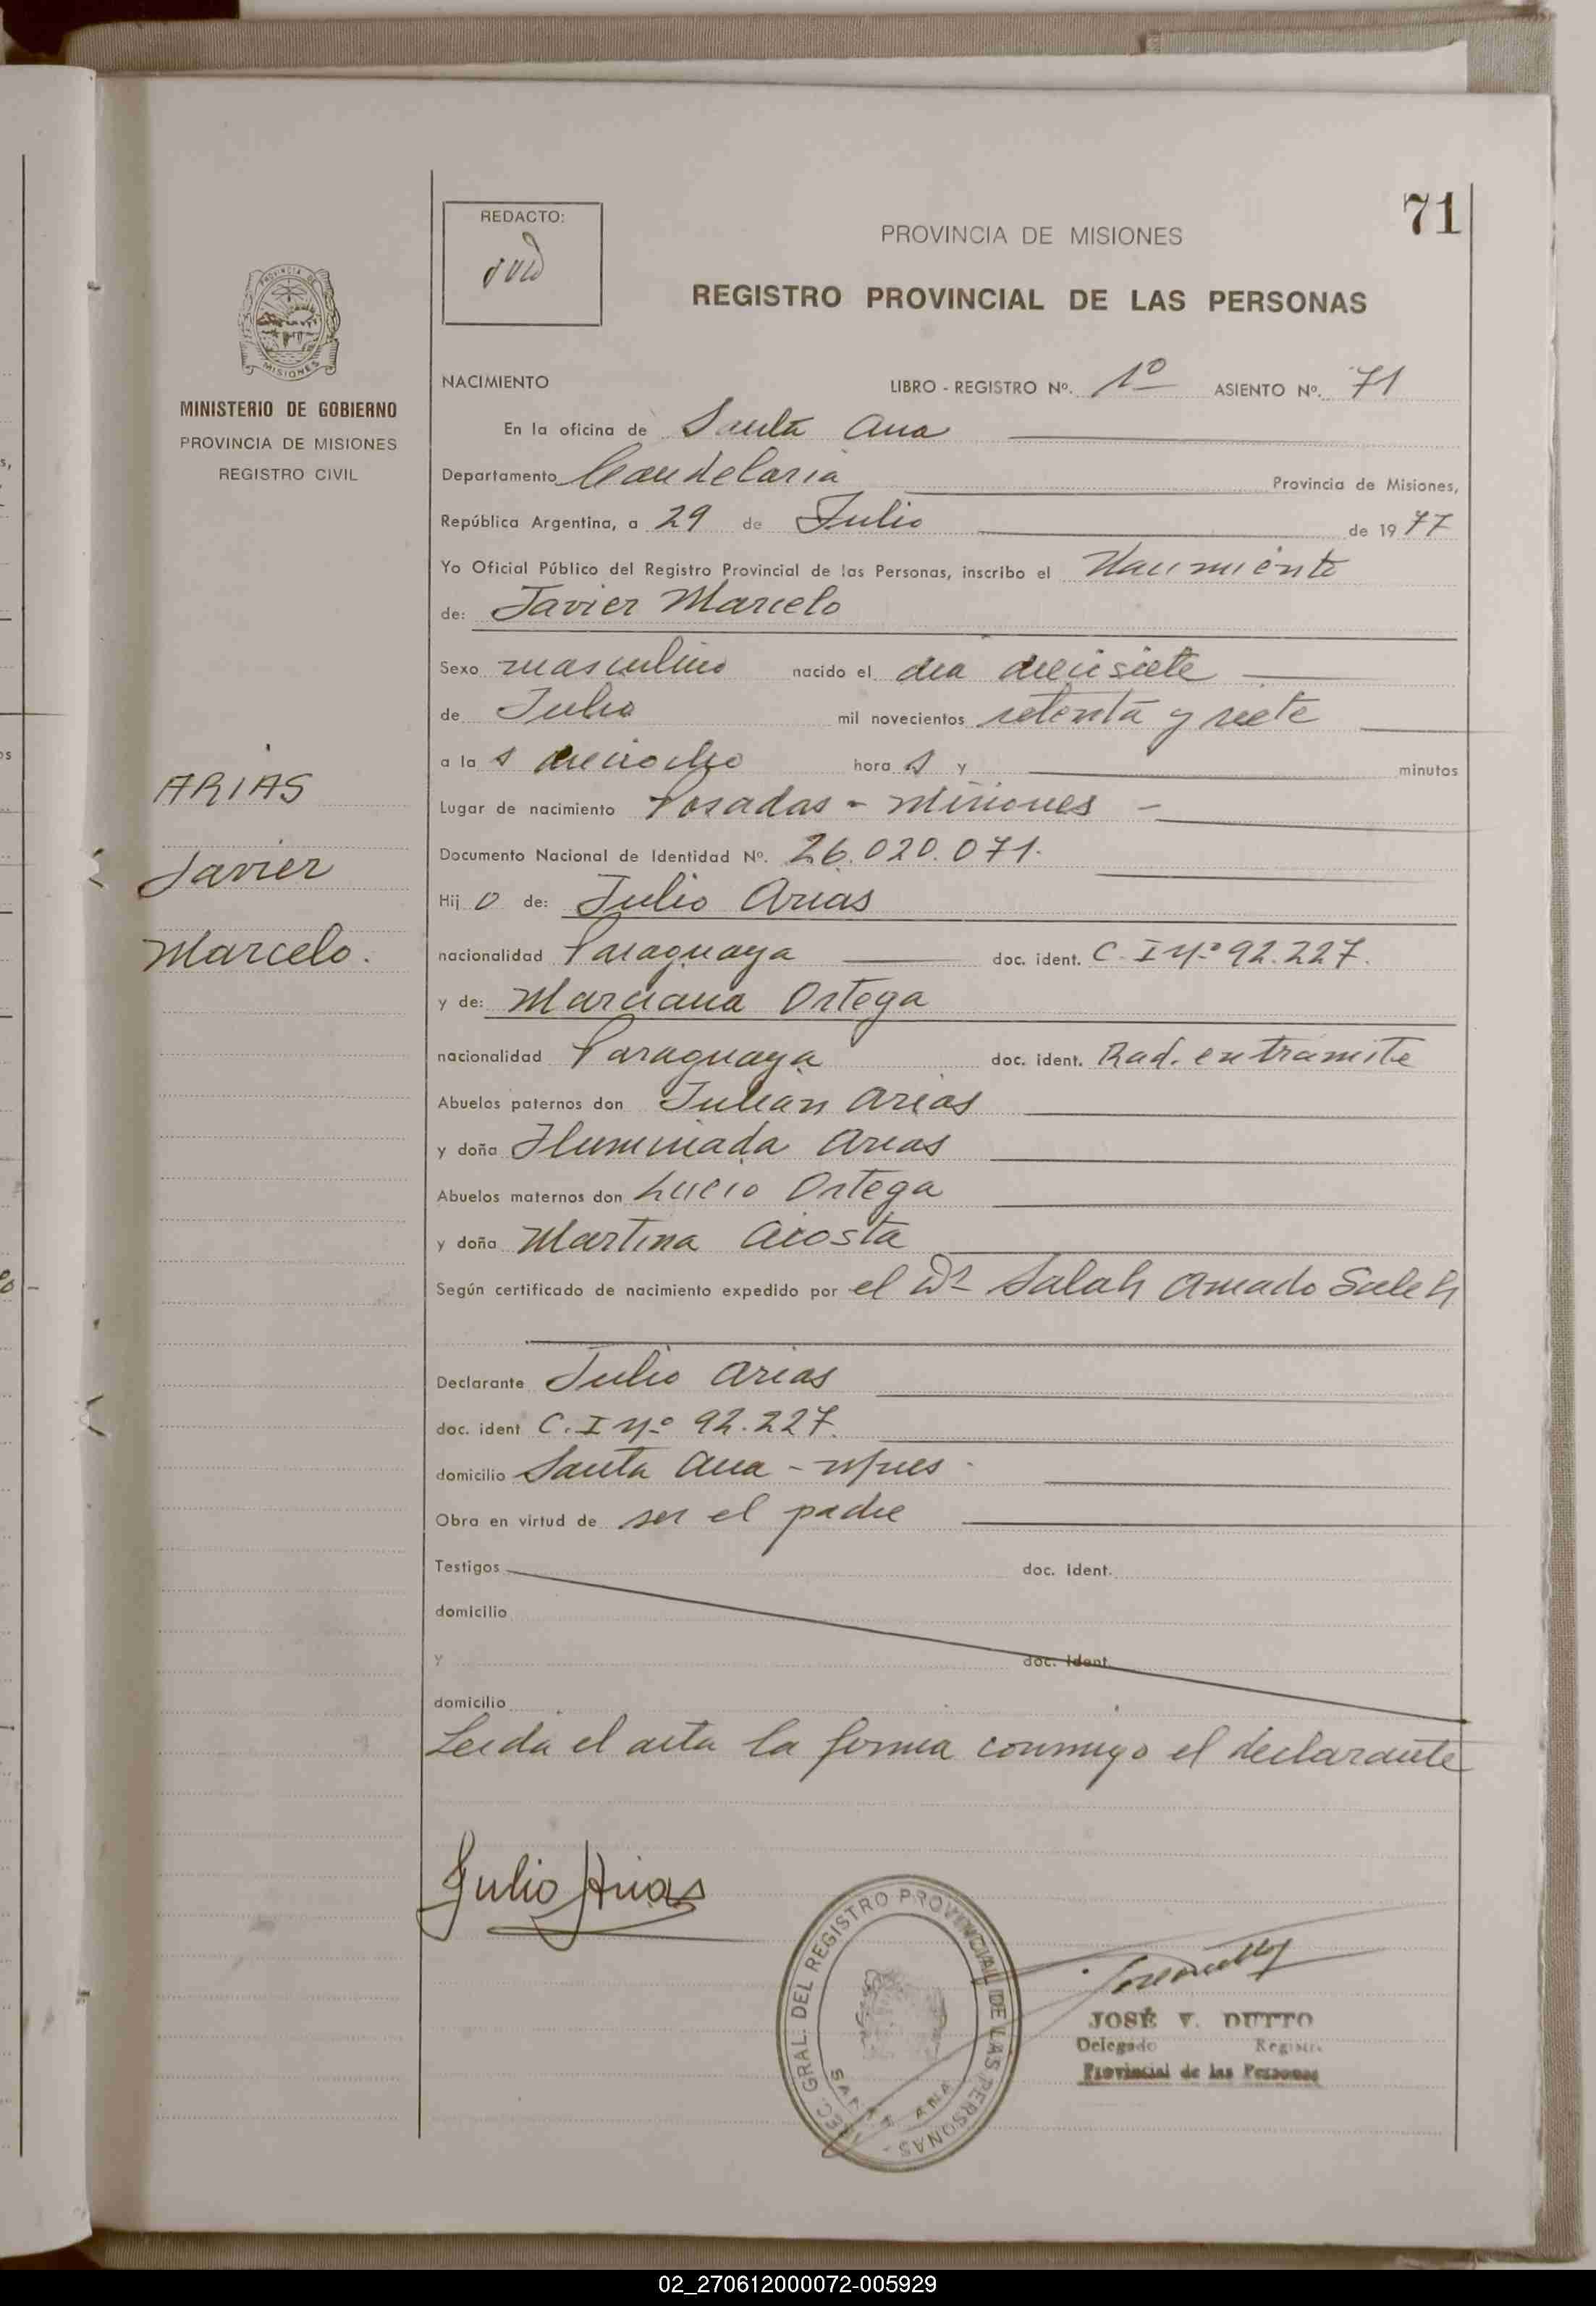 71
REDACTO:
PROVINCIA DE MISIONES
REGISTRO PROVINCIAL DE LAS PERSONAS
PROVINCIA DE
MISIONES
MINISTERIO DE GOBIERNO
PROVINCIA DE MISIONES
REGISTRO CIVIL
ARIAS
Javier
Marcelo.
NACIMIENTO LIBRO - REGISTRO Nº. 1º ASIENTO Nº. 71
En la oficina de Santa Ana
Departamento Candelaria Provincia de Misiones,
República Argentina, a 29 de Julio de 1977
Yo Oficial Público del Registro Provincial de las Personas, inscribo el Nacimiento
de: Javier Marcelo
Sexo masculino nacido el dia diecisiete
de Julio mil novecientos setenta y siete
a las dieciocho horas y minutos
Lugar de nacimiento Posadas - Misiones -
Documento Nacional de Identidad Nº. 26.020.071.
Hijo de: Julio Arias
nacionalidad Paraguaya doc. ident. C. I Nº 92.227.
y de: Marciana Ortega
nacionalidad Paraguaya doc. ident. Rad. en tramite
Abuelos paternos don Julián Arias
y doña Iluminada Arias
Abuelos maternos don Lucio Ortega
y doña Martina Acosta
Según certificado de nacimiento expedido por el Dr Salah Amado Saleh
Declarante Julio Arias
doc. ident C. I Nº 92.227.
domicilio Santa Ana - Mnes -
Obra en virtud de ser el padre
Testigos doc. Ident.
domicilio
y doc. Ident.
domicilio
Leida el acta la firma conmigo el declarante
Julio Arias
DIREC. GRAL. DEL REGISTRO PROVINCIAL DE LAS PERSONAS -
SANTA ANA
JOSÉ V. DUTTO
Delegado Registro
Provincial de las Personas
02_270612000072-005929